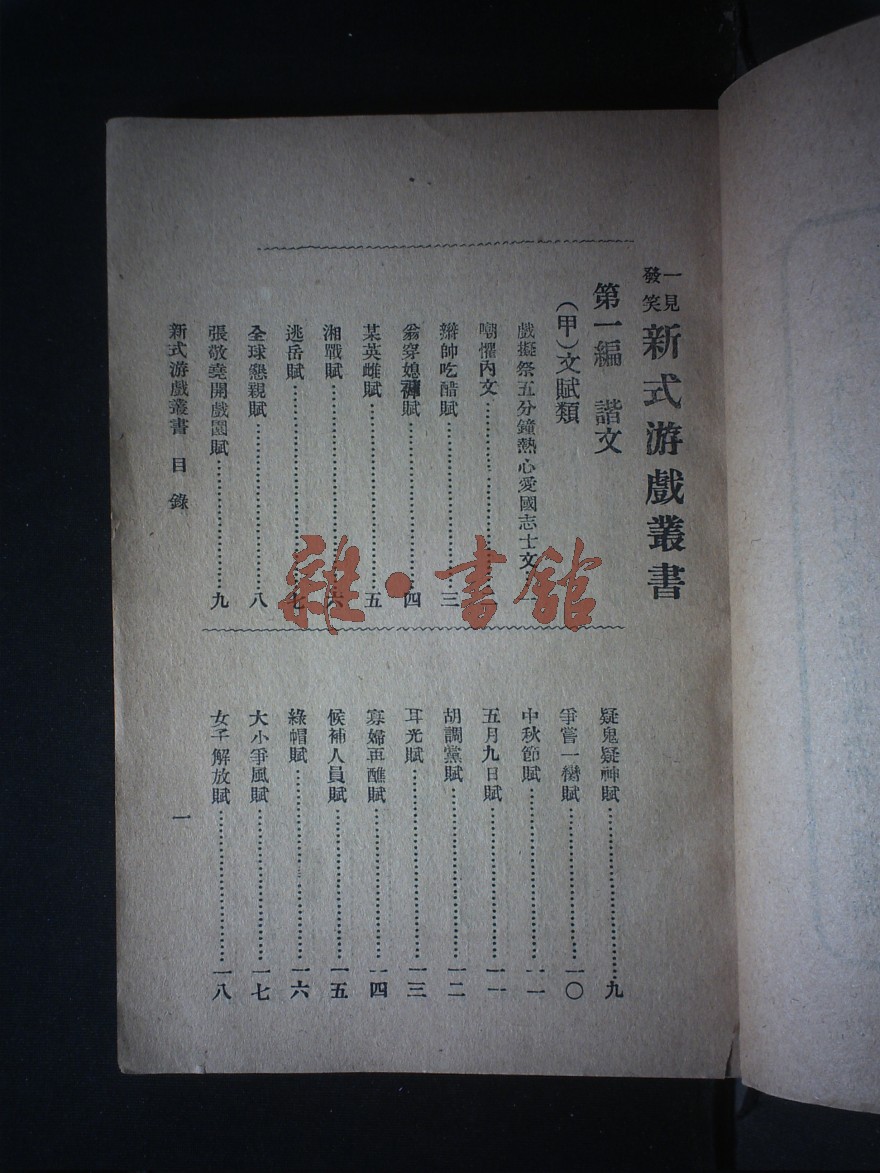 一見發笑 新式游戲叢書
第一編 諧文
(甲)文賦類
戲擬祭五分鐘熱心愛國志士文
嘲懼內文
辮帥吃醋賦……三
翁穿媳褲賦……四
某英雌賦……五
湘戰賦……六
逃岳賦……七
全球懇親賦……八
張敬堯開戲園賦……九
疑鬼疑神賦……九
爭嘗一臠賦……一〇
中秋節賦……一一
五月九日賦……一一
胡調黨賦……一二
耳光賦……一三
寡婦再醮賦……一四
候補人員賦……一五
綠帽賦……一六
大小爭風賦……一七
女子解放賦……一八
新式游戲叢書 目錄 一
雜·書館